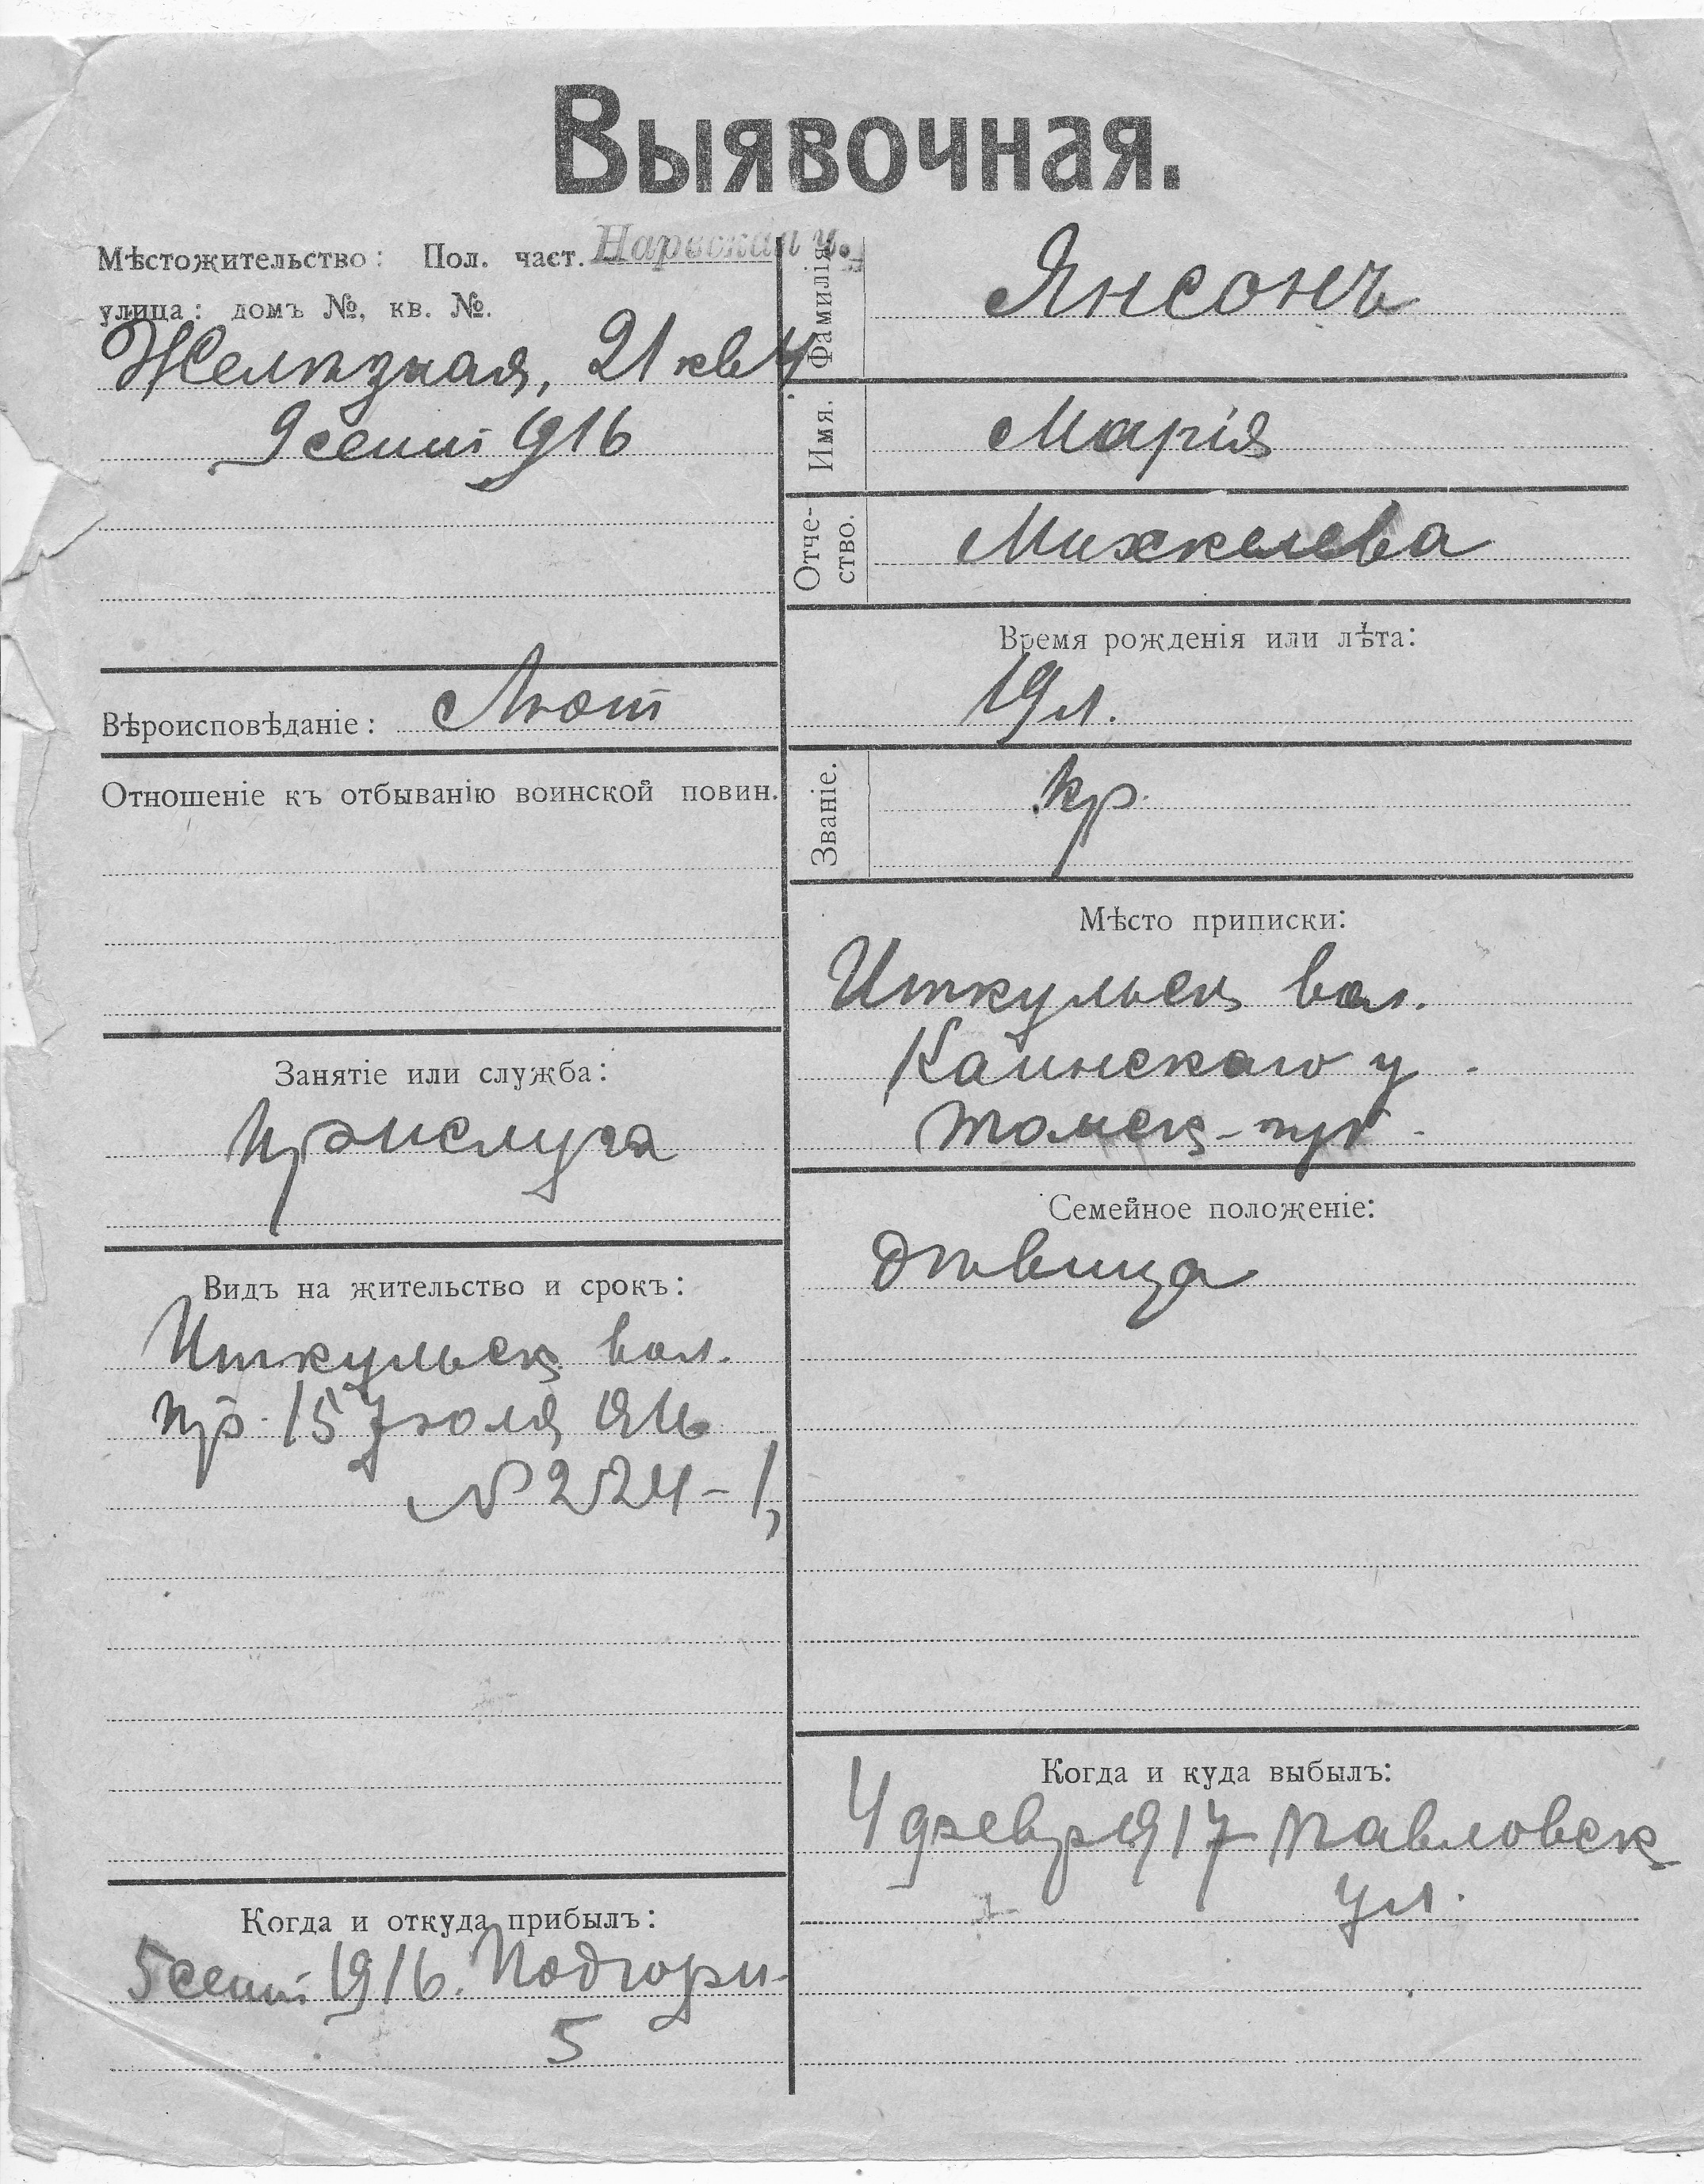 Выявочная.
Мѣстожительство: Пол. част. Нарвская ч.
улица: домъ №, кв. №.
Желѣзная, 21 кв 4
9 сент 916
Вѣроисповѣданіе: Лют
Отношеніе къ отбыванію воинской повин.
Занятіе или служба:
прислуга
Видъ на жительство и срокъ:
Иткульск вол.
пр. 15 Іюля 916
№ 2524-1
Когда и откуда прибылъ:
5 сент 1916. Подгорн-
5
Фамилія
Янсонъ
Имя.
Марія
Отче-
ство.
Михкелева
Время рожденія или лѣта:
19 л.
Званіе.
кр.
Мѣсто приписки:
Иткульск вол.
Каинскаго у.
Томск-губ.
Семейное положеніе:
дѣвица
Когда и куда выбылъ:
4 февр 917 Павловск
ул.